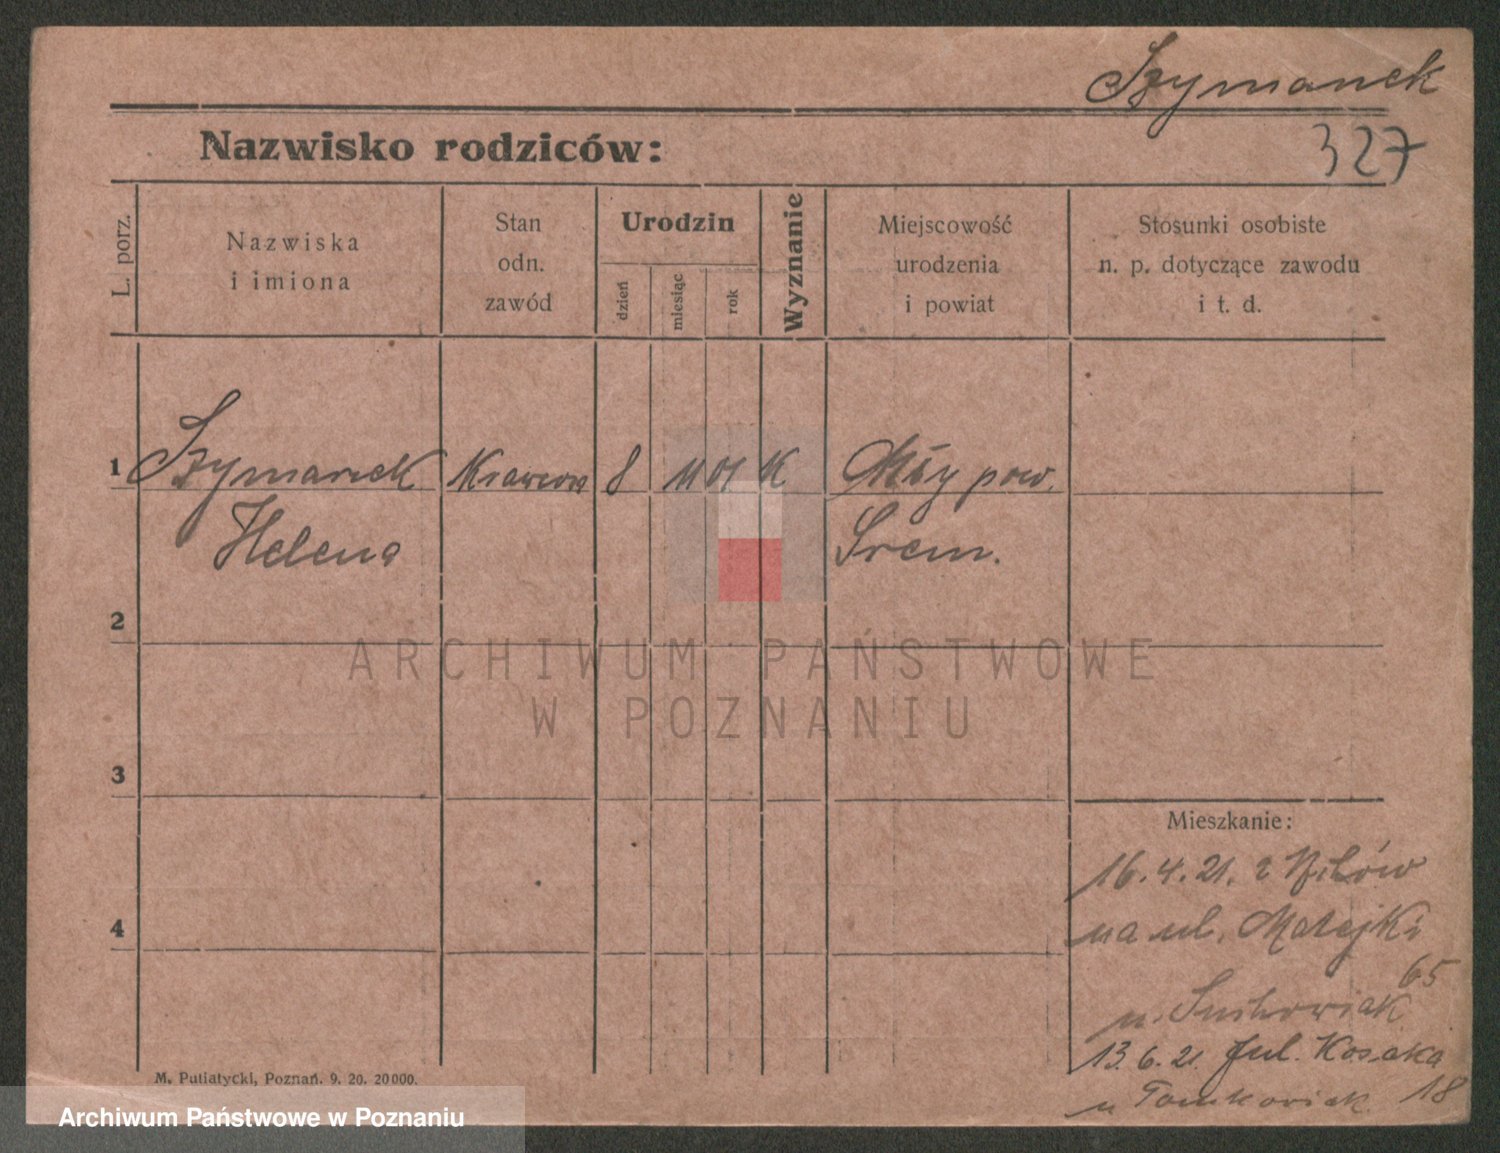 Szymanek
327
Nazwisko rodziców:
L. porz.
Nazwiska
i imiona
Stan
odn.
zawód
Urodzin
dzień
miesiąc
rok
Wyznanie
Miejscowość
urodzenia
i powiat
Stosunki osobiste
n. p. dotyczące zawodu
i t. d.
1 Szymanek Krawcowa 8 11 01 K pow.
Helena Śrem.
2
3
4
Mieszkanie:
16.4.21. z
na ul. Matejki
65
u.
13.6.21. Jul. Kossaka
u Tomkowiak 18
M. Putiatycki, Poznań. 9. 20. 20000.
ARCHIWUM PAŃSTWOWE
W POZNANIU
Archiwum Państwowe w Poznaniu